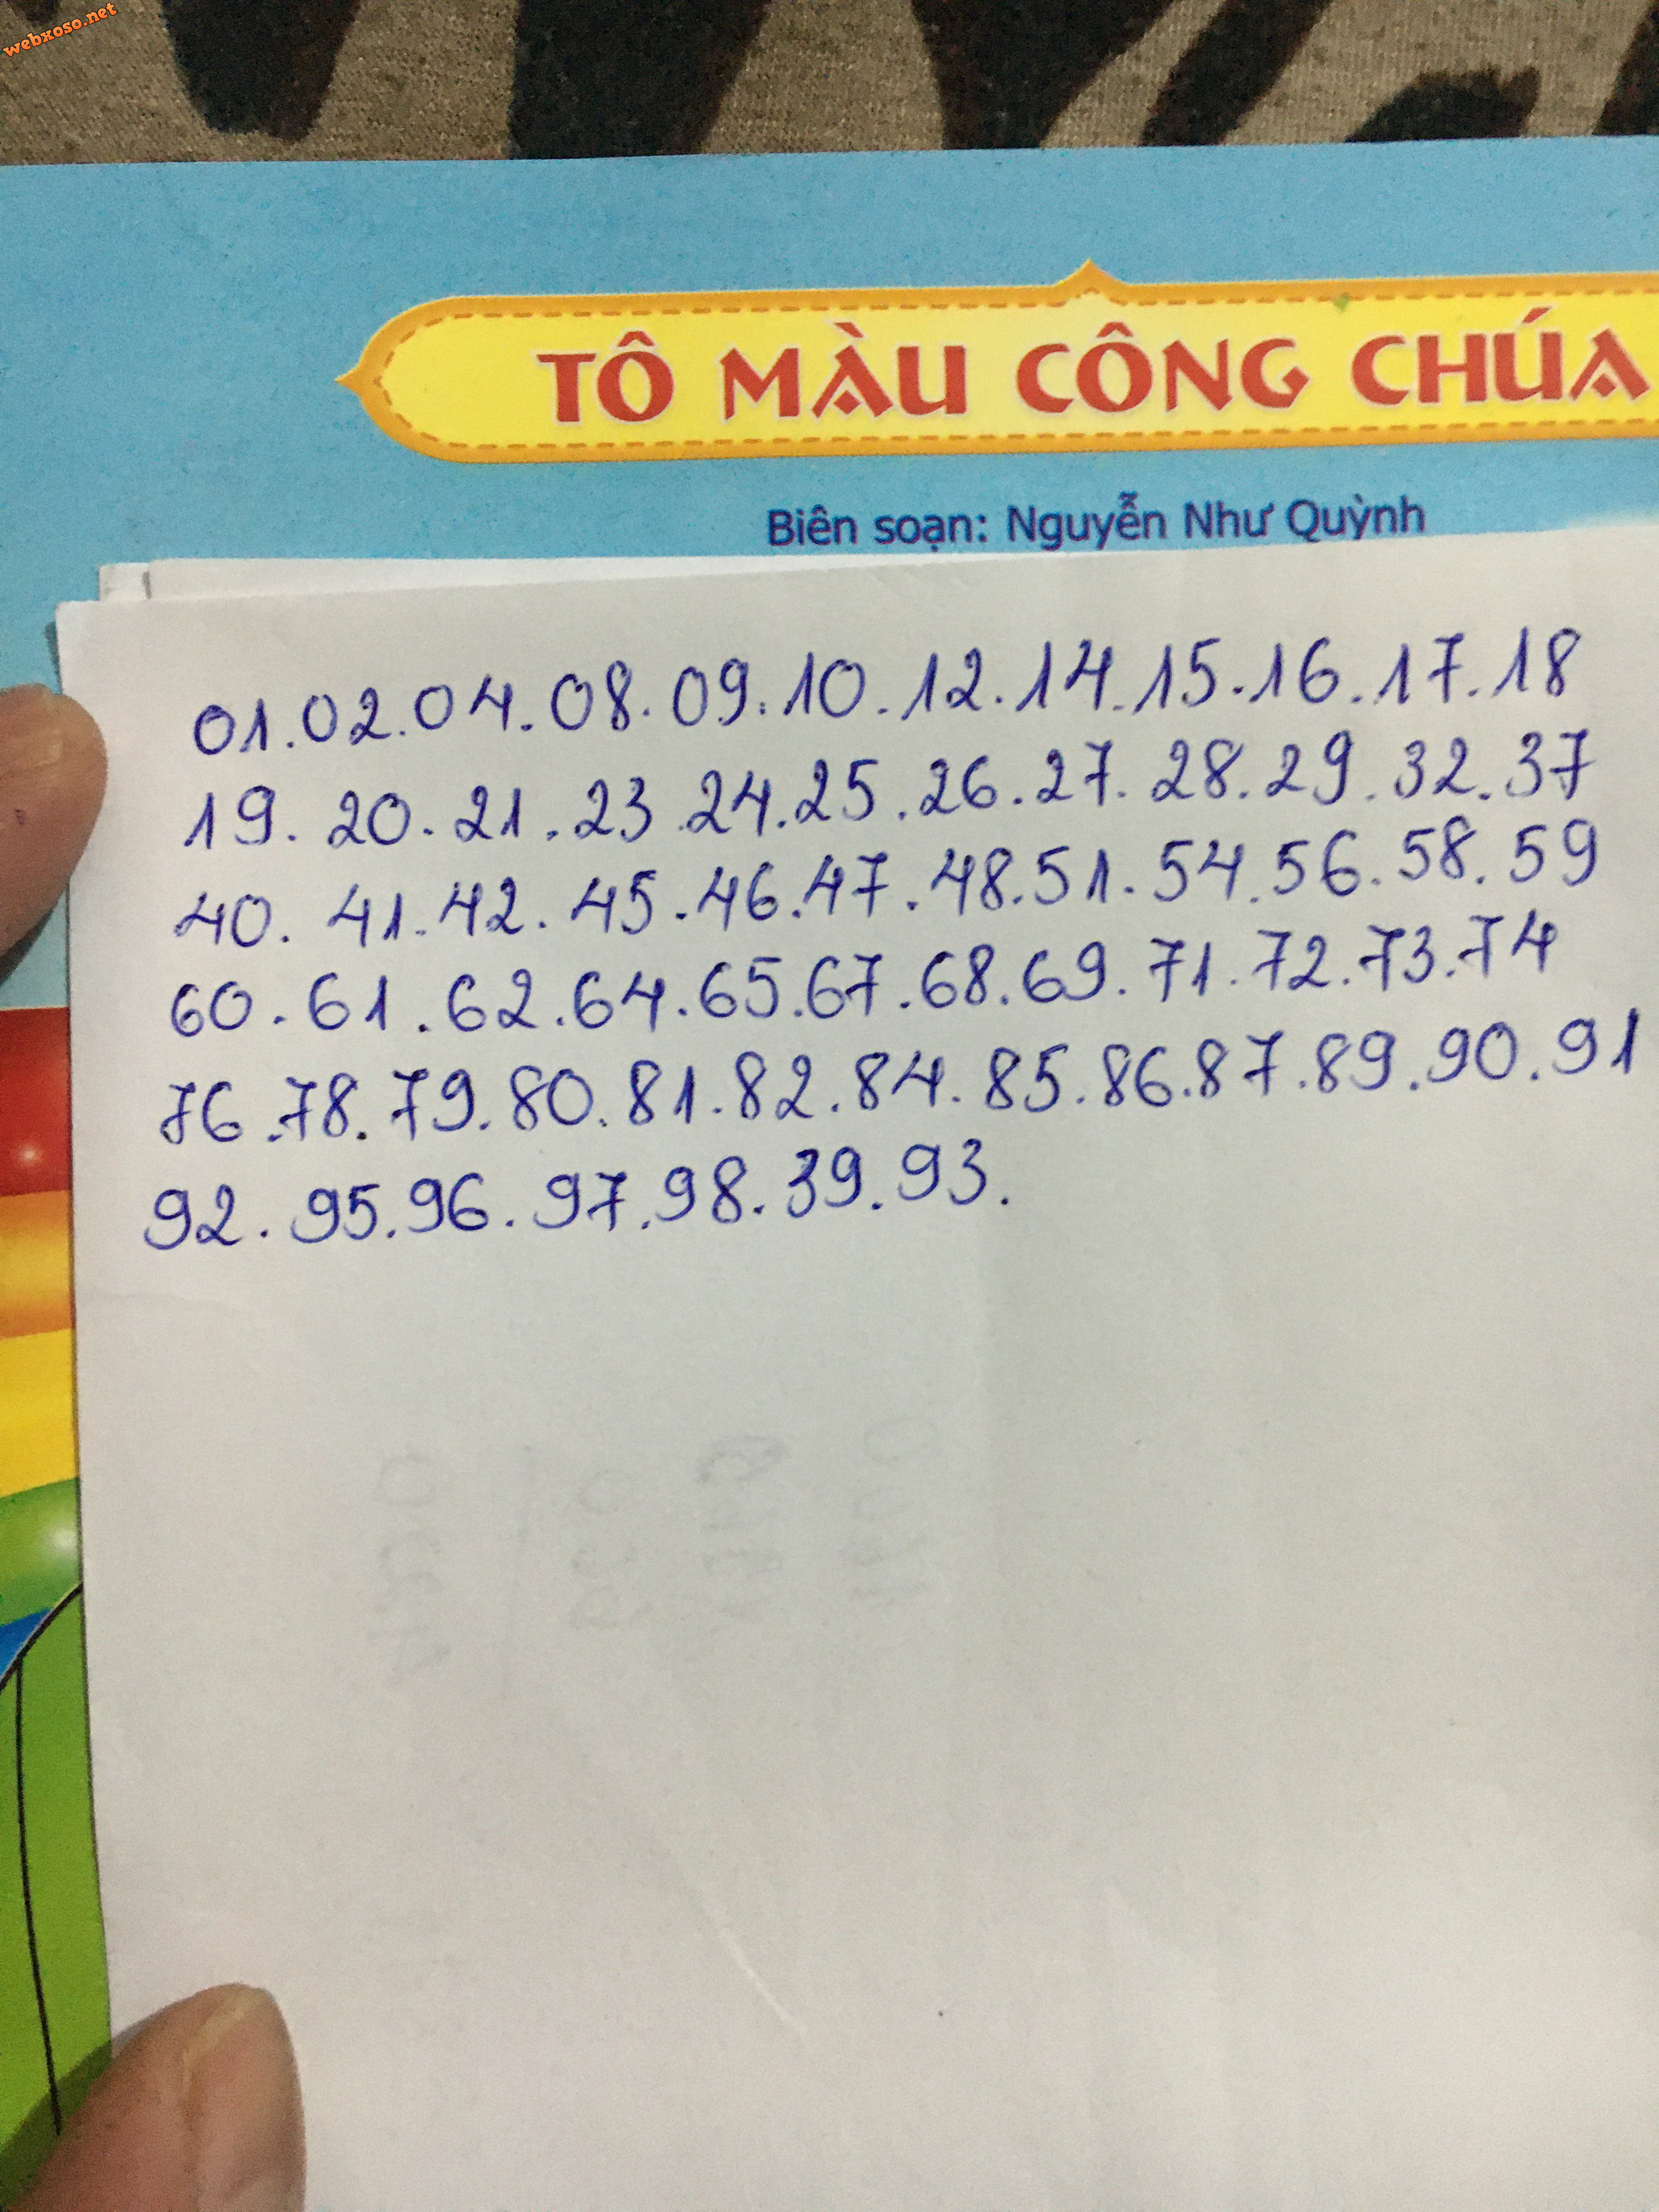 webxoso.net
TÔ MÀU CÔNG CHÚA
Biên soạn: Nguyễn Như Quỳnh
01.02.04.08.09.10.12.14.15.16.17.18
19.20.21.23.24.25.26.27.28.29.32.37
40.41.42.45.46.47.48.51.54.56.58.59
60.61.62.64.65.67.68.69.71.72.73.74
76.78.79.80.81.82.84.85.86.87.89.90.91
92.95.96.97.98.39.93.